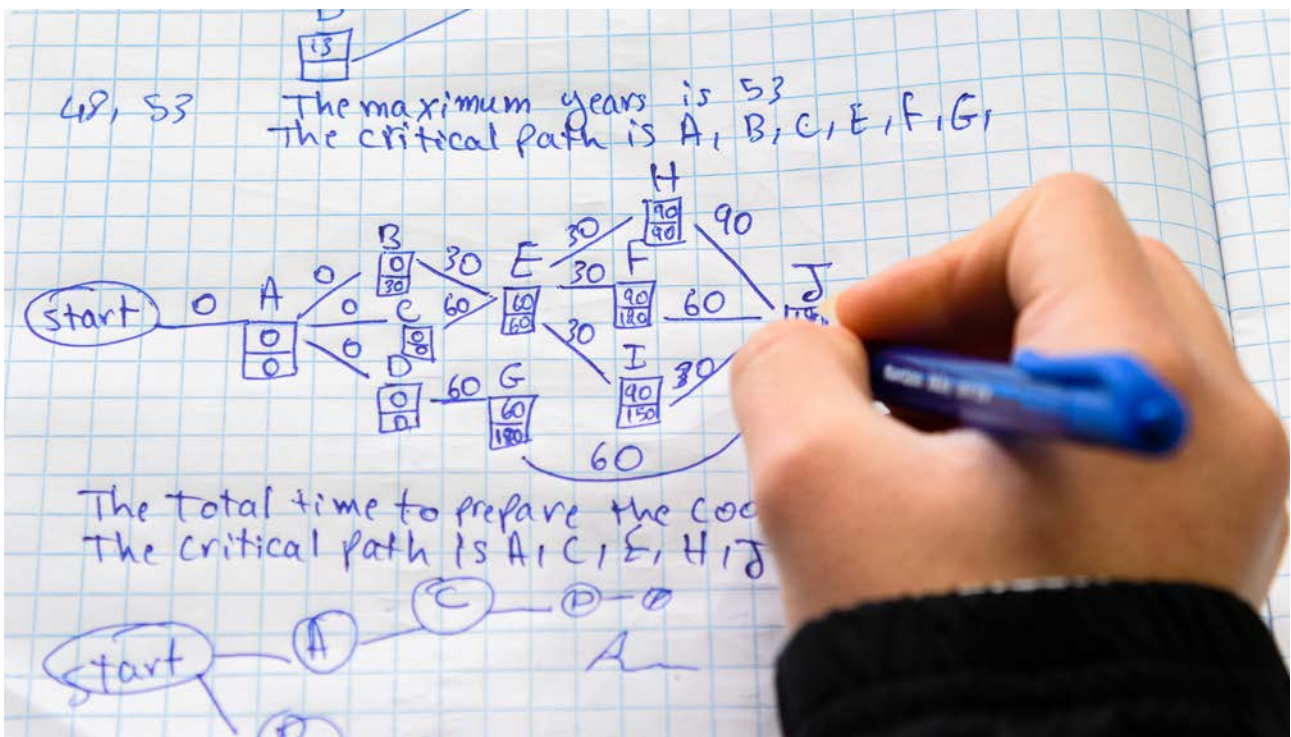 13
48, 53 The maximum years is 53
The critical path is A, B, C, E, F, G,
H
90
90
90
B
0
30
30
E
30
30
F
J
start
0
A
0
0
0
0
0
C
0
0
60
60
60
30
90
120
60
D
0
0
60
G
60
180
I
90
150
30
60
The total time to prepare the
The critical path is A, C, E, H, J
start
A
C
D